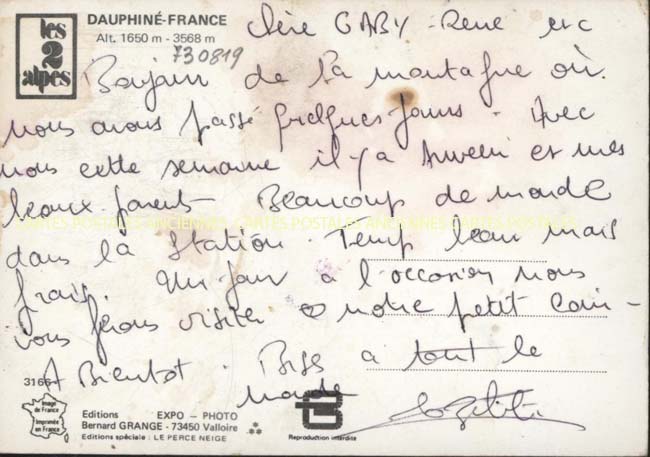 les
2
alpes
DAUPHINÉ-FRANCE
Alt. 1650 m - 3568 m
730819
chère GABY - René etc
Bonjour de la montagne où
nous avons passé quelques jours - Avec
nous cette semaine il y a et mes
beaux parents Beaucoup de monde
CARTES POSTALES ANCIENNES CARTES POSTALES ANCIENNES CARTES POSTALES
dans la station. Temp beau mais
frais. Un jour à l'occasion nous
vous ferons visiter notre petit coin -
A Bientot. Bises à tout le
monde
3166
Image
de France
Imprimée
en France
Editions EXPO - PHOTO
Bernard GRANGE - 73450 Valloire
Editions spéciale : LE PERCE NEIGE
Reproduction interdite